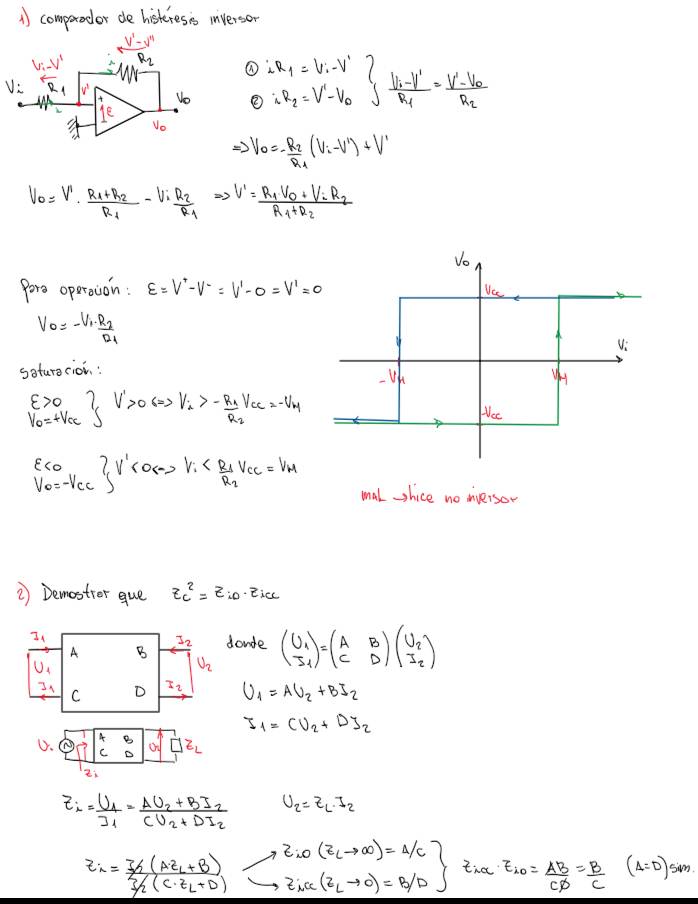 1) comparador de histéresis inversor
V'-V''
Vi-V'
R2
i
Vi
R1
V'
i
+
-
ε
Vo
Vo
① iR1 = Vi-V'
② iR2 = V'-Vo
Vi-V'/R1 = V'-Vo/R2
=> Vo = -R2/R1 (Vi-V') + V'
Vo = V' · R1+R2/R1 - Vi R2/R1 => V' = R1Vo + ViR2/R1+R2
Para operación: ε = V⁺-V⁻ = V'-0 = V' = 0
Vo = -Vi·R2/R1
saturación:
ε>0
Vo=+Vcc } V'>0 <=> Vi > -R1/R2 Vcc = -VM
ε<0
Vo=-Vcc } V'<0 <-> Vi < R1/R2 Vcc = VM
Vo
Vcc
Vi
-VM
VM
-Vcc
MAL → hice no inversor
2) Demostrar que Zc² = Zio · Zicc
I1
A B
I2
U1
U2
I1
C D
I2
donde (U1 I1) = (A B C D)(U2 I2)
U1 = AU2 + BI2
I1 = CU2 + DI2
U.
A B
C D
U2
ZL
Zi
Zi = U1/I1 = AU2 + BI2/CU2 + DI2
U2 = ZL·I2
Zi = I2 (A·ZL+B)/I2 (C·ZL+D)
Zio (ZL→∞) = A/C
Zicc (ZL→0) = B/D
Zicc · Zio = AB/CD = B/C (A=D) sim.